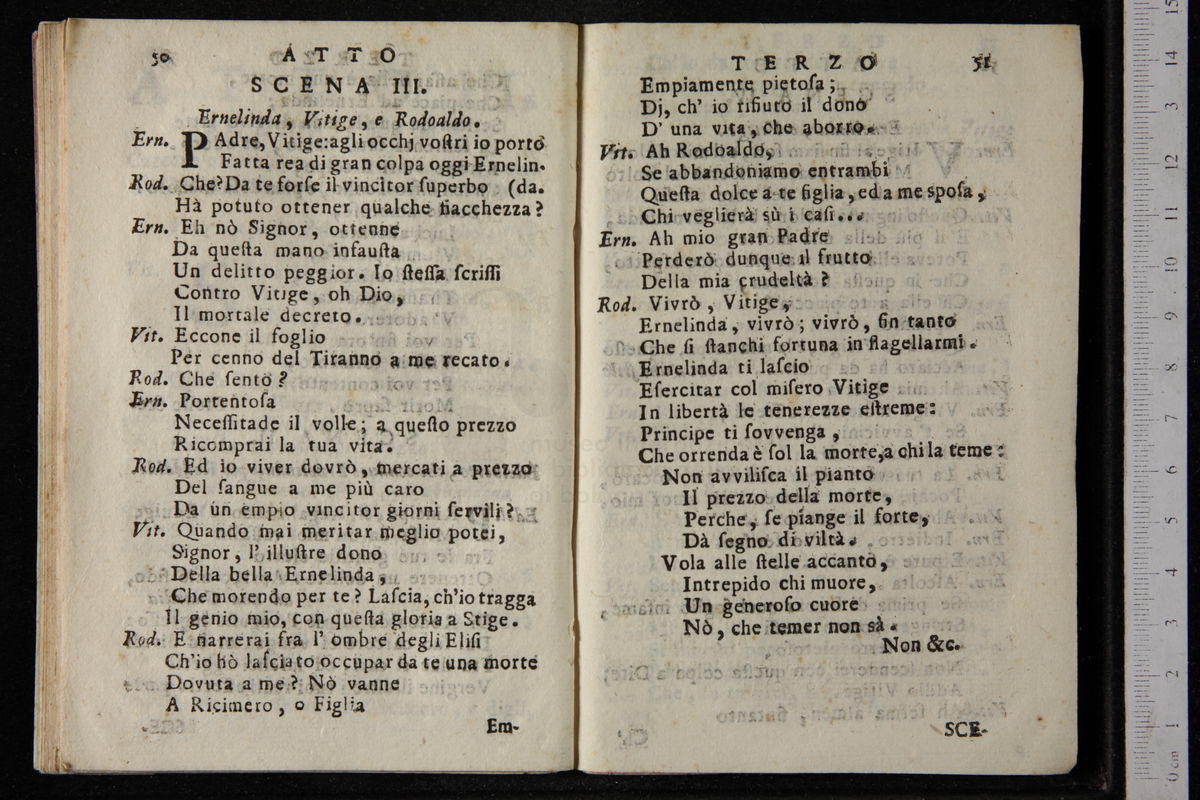 50 ATTO
SCENA III.
Ernelinda, Vitige, e Rodoaldo.
Ern. PAdre, Vitige: agli occhj voſtri io porto
Fatta rea di gran colpa oggi Ernelin-
Rod. Che? Da te forſe il vincitor ſuperbo (da.
Hà potuto ottener qualche fiacchezza?
Ern. Eh nò Signor, ottenne
Da queſta mano infauſta
Un delitto peggior. Io ſteſſa ſcriſſi
Contro Vitige, oh Dio,
Il mortale decreto.
Vit. Eccone il foglio
Per cenno del Tiranno a me recato.
Rod. Che ſento?
Ern. Portentoſa
Neceſſitade il volle; a queſto prezzo
Ricomprai la tua vita.
Rod. Ed io viver dovrò, mercati a prezzo
Del ſangue a me più caro
Da un empio vincitor giorni ſervili?
Vit. Quando mai meritar meglio potei,
Signor, l' illuſtre dono
Della bella Ernelinda,
Che morendo per te? Laſcia, ch'io tragga
Il genio mio, con queſta gloria a Stige.
Rod. E narrerai fra l' ombre degli Eliſi
Ch'io hò laſciato occupar da te una morte
Dovuta a me? Nò vanne
A Ricimero, o Figlia
Em-
TERZO 51
Empiamente pietoſa;
Dj, ch' io rifiuto il dono
D' una vita, che aborro.
Vit. Ah Rodoaldo,
Se abbandoniamo entrambi
Queſta dolce a te figlia, ed a me spoſa,
Chi veglierà sù i caſi...
Ern. Ah mio gran Padre
Perderò dunque il frutto
Della mia crudeltà?
Rod. Vivrò, Vitige,
Ernelinda, vivrò; vivrò, fin tanto
Che ſi ſtanchi fortuna in flagellarmi.
Ernelinda ti laſcio
Eſercitar col miſero Vitige
In libertà le tenerezze eſtreme:
Principe ti ſovvenga,
Che orrenda è ſol la morte, a chi la teme:
Non avviliſca il pianto
Il prezzo della morte,
Perche, ſe piange il forte,
Dà ſegno di viltà.
Vola alle ſtelle accanto,
Intrepido chi muore,
Un generoſo cuore
Nò, che temer non sà.
Non &c.
SCE-
0 cm 1 2 3 4 5 6 7 8 9 10 11 12 13 14 15